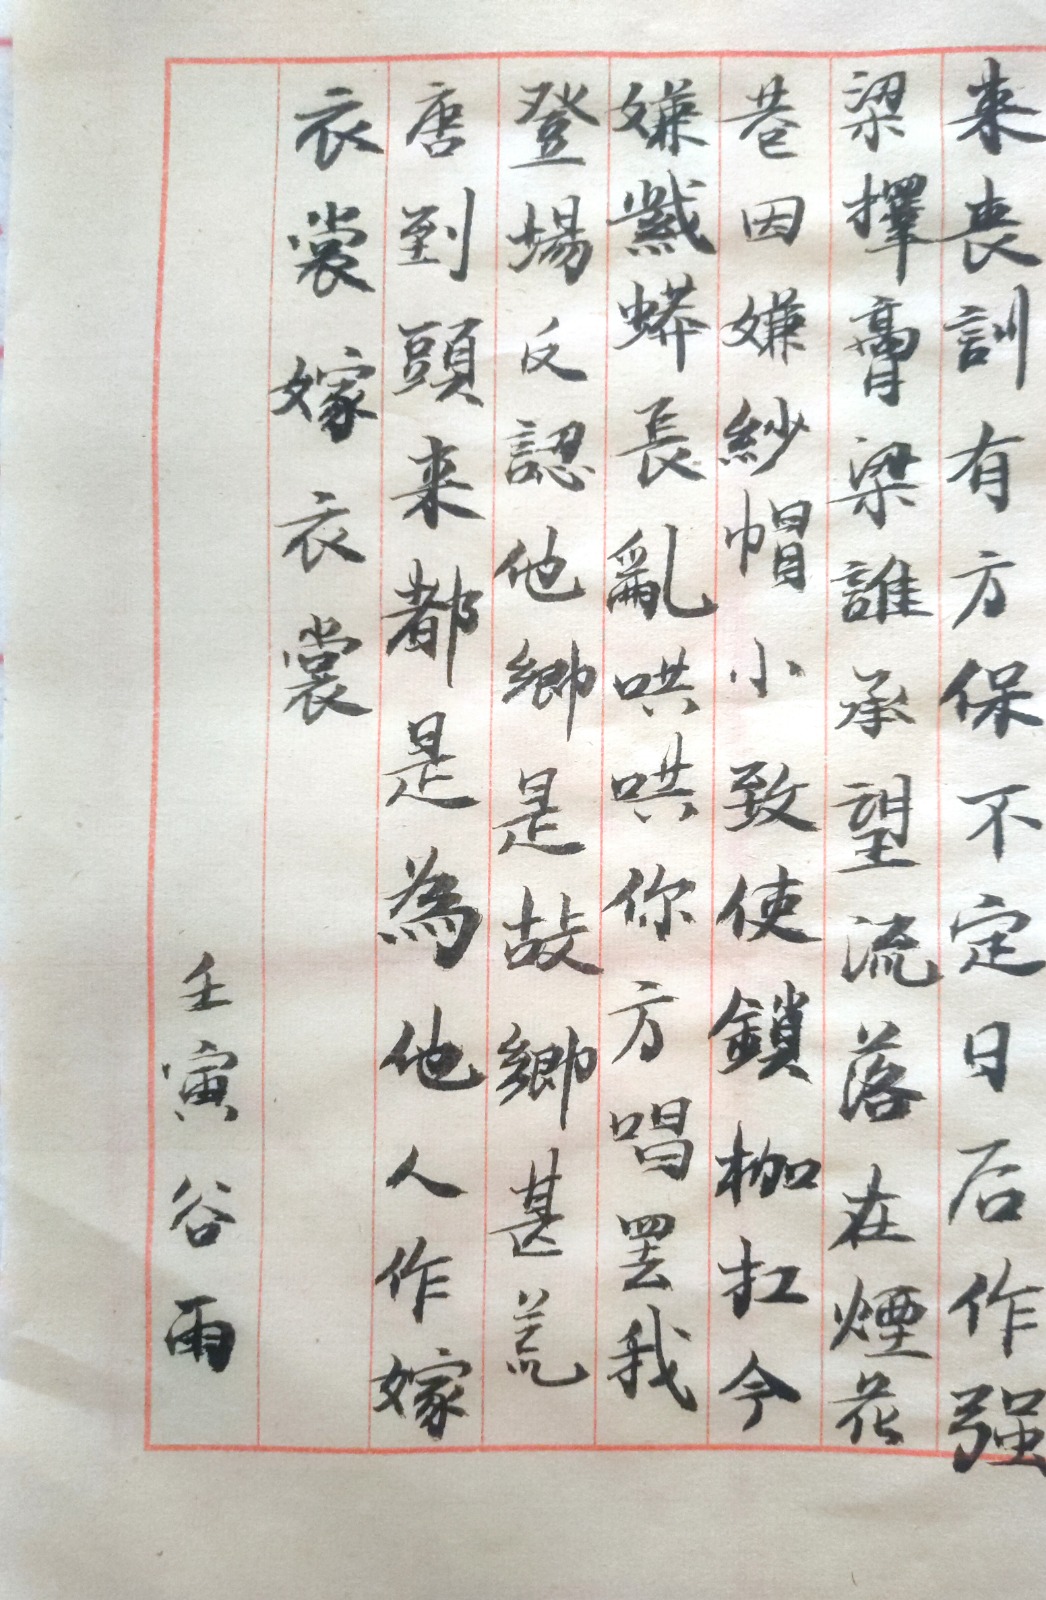 来丧訓有方保不定日后作强
梁擇膏梁誰承望流落在煙花
巷因嫌紗帽小致使鎖枷扛今
嫌紫蟒長亂哄哄你方唱罢我
登場反認他鄉是故鄉甚荒
唐到頭来都是為他人作嫁
衣裳嫁衣裳
壬寅谷雨